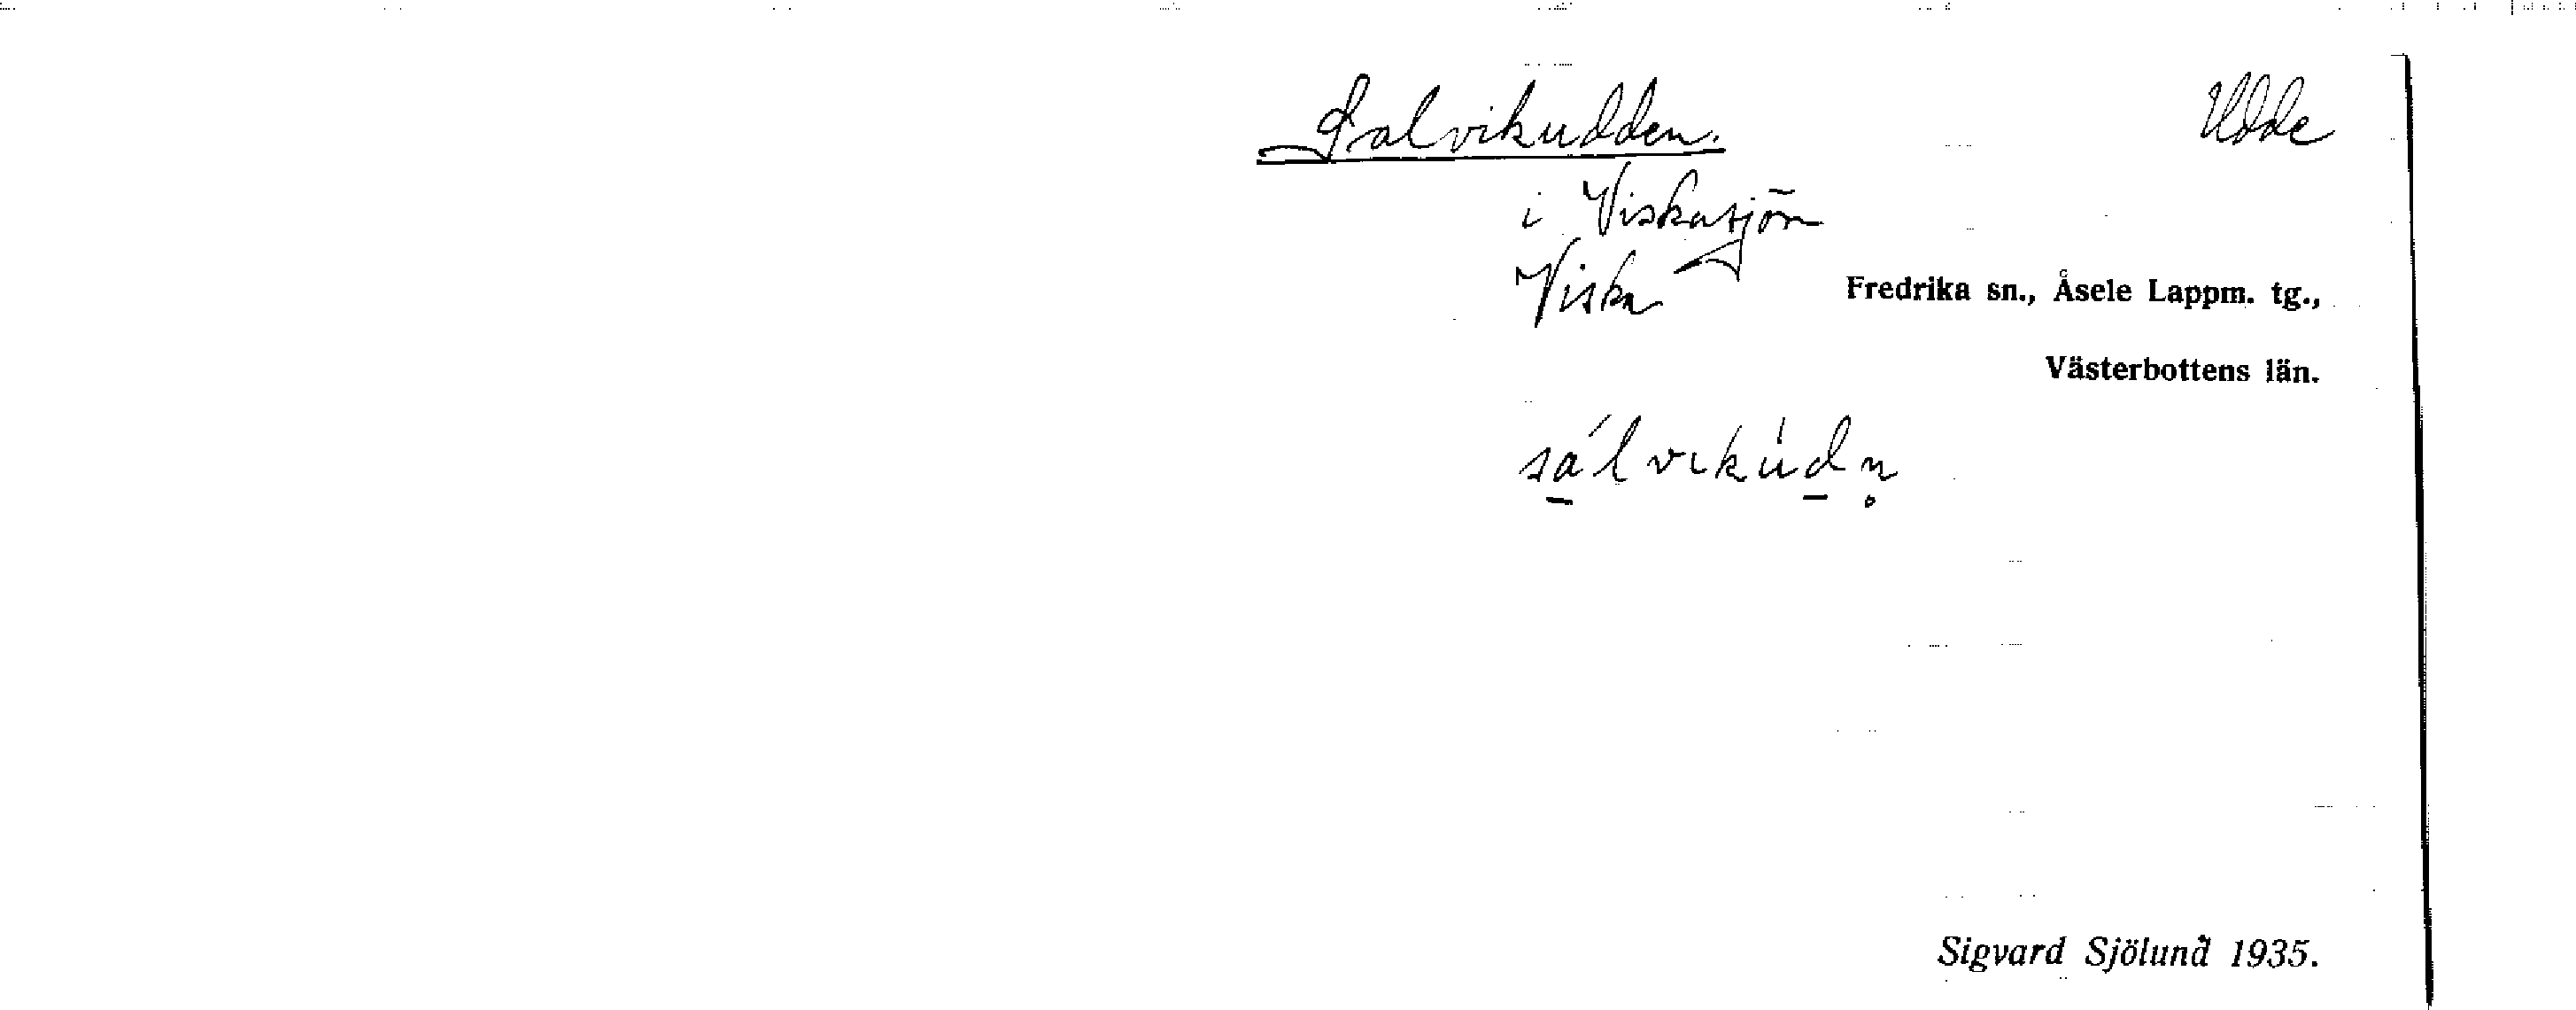 Salvikudden. Udde
i Viskasjön
Viska Fredrika sn., Åsele Lappm. tg.,
Västerbottens län.
sálvikùdn̥
Sigvard Sjölund 1935.